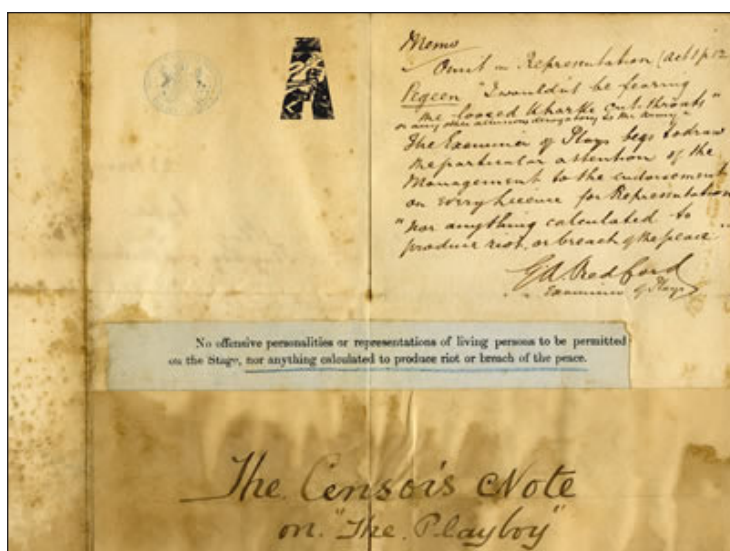 Memo
Omit in Representation (act 1 p. 12
Pegeen "I wouldn't be fearing
the loosed kharki cut-throats"
or any other allusions derogatory to the Army
The Examiner of Plays begs to draw
the particular attention of the
Management to the endorsement
on every Licence for Representation
"nor anything calculated to
produce riot, or breach of the peace"
G.A. Redford
Examiner of Plays
No offensive personalities or representations of living persons to be permitted
on the Stage, nor anything calculated to produce riot or breach of the peace.
The Censor's Note
on "The Playboy"